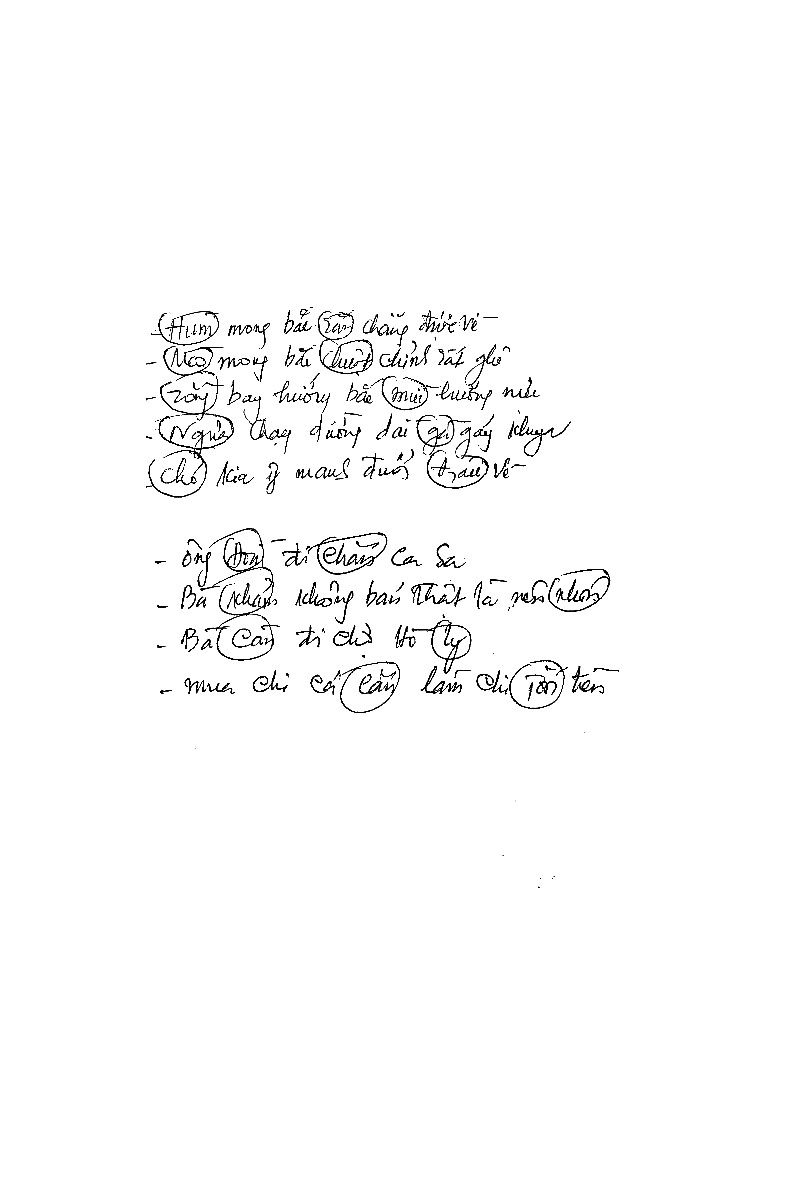 - Hùm mong bắt rắn chẳng được về
- Mèo mong bắt chuột chỉnh rất ghê
- Rồng bay hướng bắc mùi hướng nam
- Ngựa chạy đường dài gà gáy khuya
Chó kia ý mạnh đuổi trâu về
- Ông đi chấn ca sa
- Bà khảm không ban thật là nên
- Bà Cấn đi chợ Hồ ly
- mua chi cá Cấn làm chi Tốn tiền